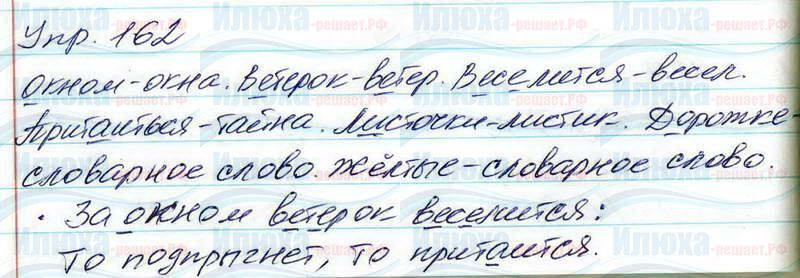 Упр. 162
Окном-окна. Ветерок-ветер. Веселится-весел.
Притаиться-тайна. Листочки-листик. Дорожке-
словарное слово. Жёлтые-словарное слово.
За окном ветерок веселится:
То подпрыгнет, то притаится.